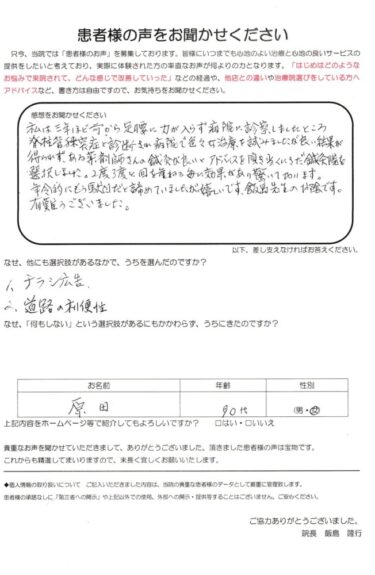 患者様の声をお聞かせください
只今、当院では「患者様のお声」を募集しております。皆様にいつまでも心地のよい治療と心地の良いサービスの
提供をしたいと考えており、実際に体験された方の率直なお声が何よりの力となります。「はじめはどのような
お悩みで来院されて、どんな感じで改善していった」などの経過や、他店との違いや治療院選びをしている方へ
アドバイスなど、書き方は自由ですので、お気持ちをお聞かせください。
感想をお聞かせください
私は5年ほど前から足腰に力が入らず病院に診察しましたところ
脊柱管狭窄症と診断され病院で色々な治療を試みましたが良い結果が
得られずある薬剤師さんの鍼灸が良いとアドバイスを頂き いいだ鍼灸院を
選択しました。2度3度と回を重ねる毎に効果があり驚いて居ります。
年令的にもう駄目だと諦めていましたが嬉しいです。飯島先生のお陰です。
有難うございました。
以下、差し支えなければお答えください。
なぜ、他にも選択肢があるなかで、うちを選んだのですか？
1、チラシ広告
2、道路の利便性
なぜ、「何もしない」という選択肢があるにもかかわらず、うちにきたのですか？
お名前 年齢 性別
原田 90代 (男・女)
上記内容をホームページ等で紹介してもよろしいですか？ □はい・□いいえ
貴重なお声を聞かせていただきまして、ありがとうございました。頂きました患者様の声は宝物です。
これからも精進してまいりますので、末長く宜しくお願いいたします。
◆個人情報の取り扱いについて ご記入いただきました内容は、当院の貴重な患者様のデータとして厳重に管理致します。
患者様の承諾なしに「第三者への開示」や上記以外での使用、外部への開示・提供等することはございません。ご安心ください。
ご協力ありがとうございました。
院長 飯島 隆行